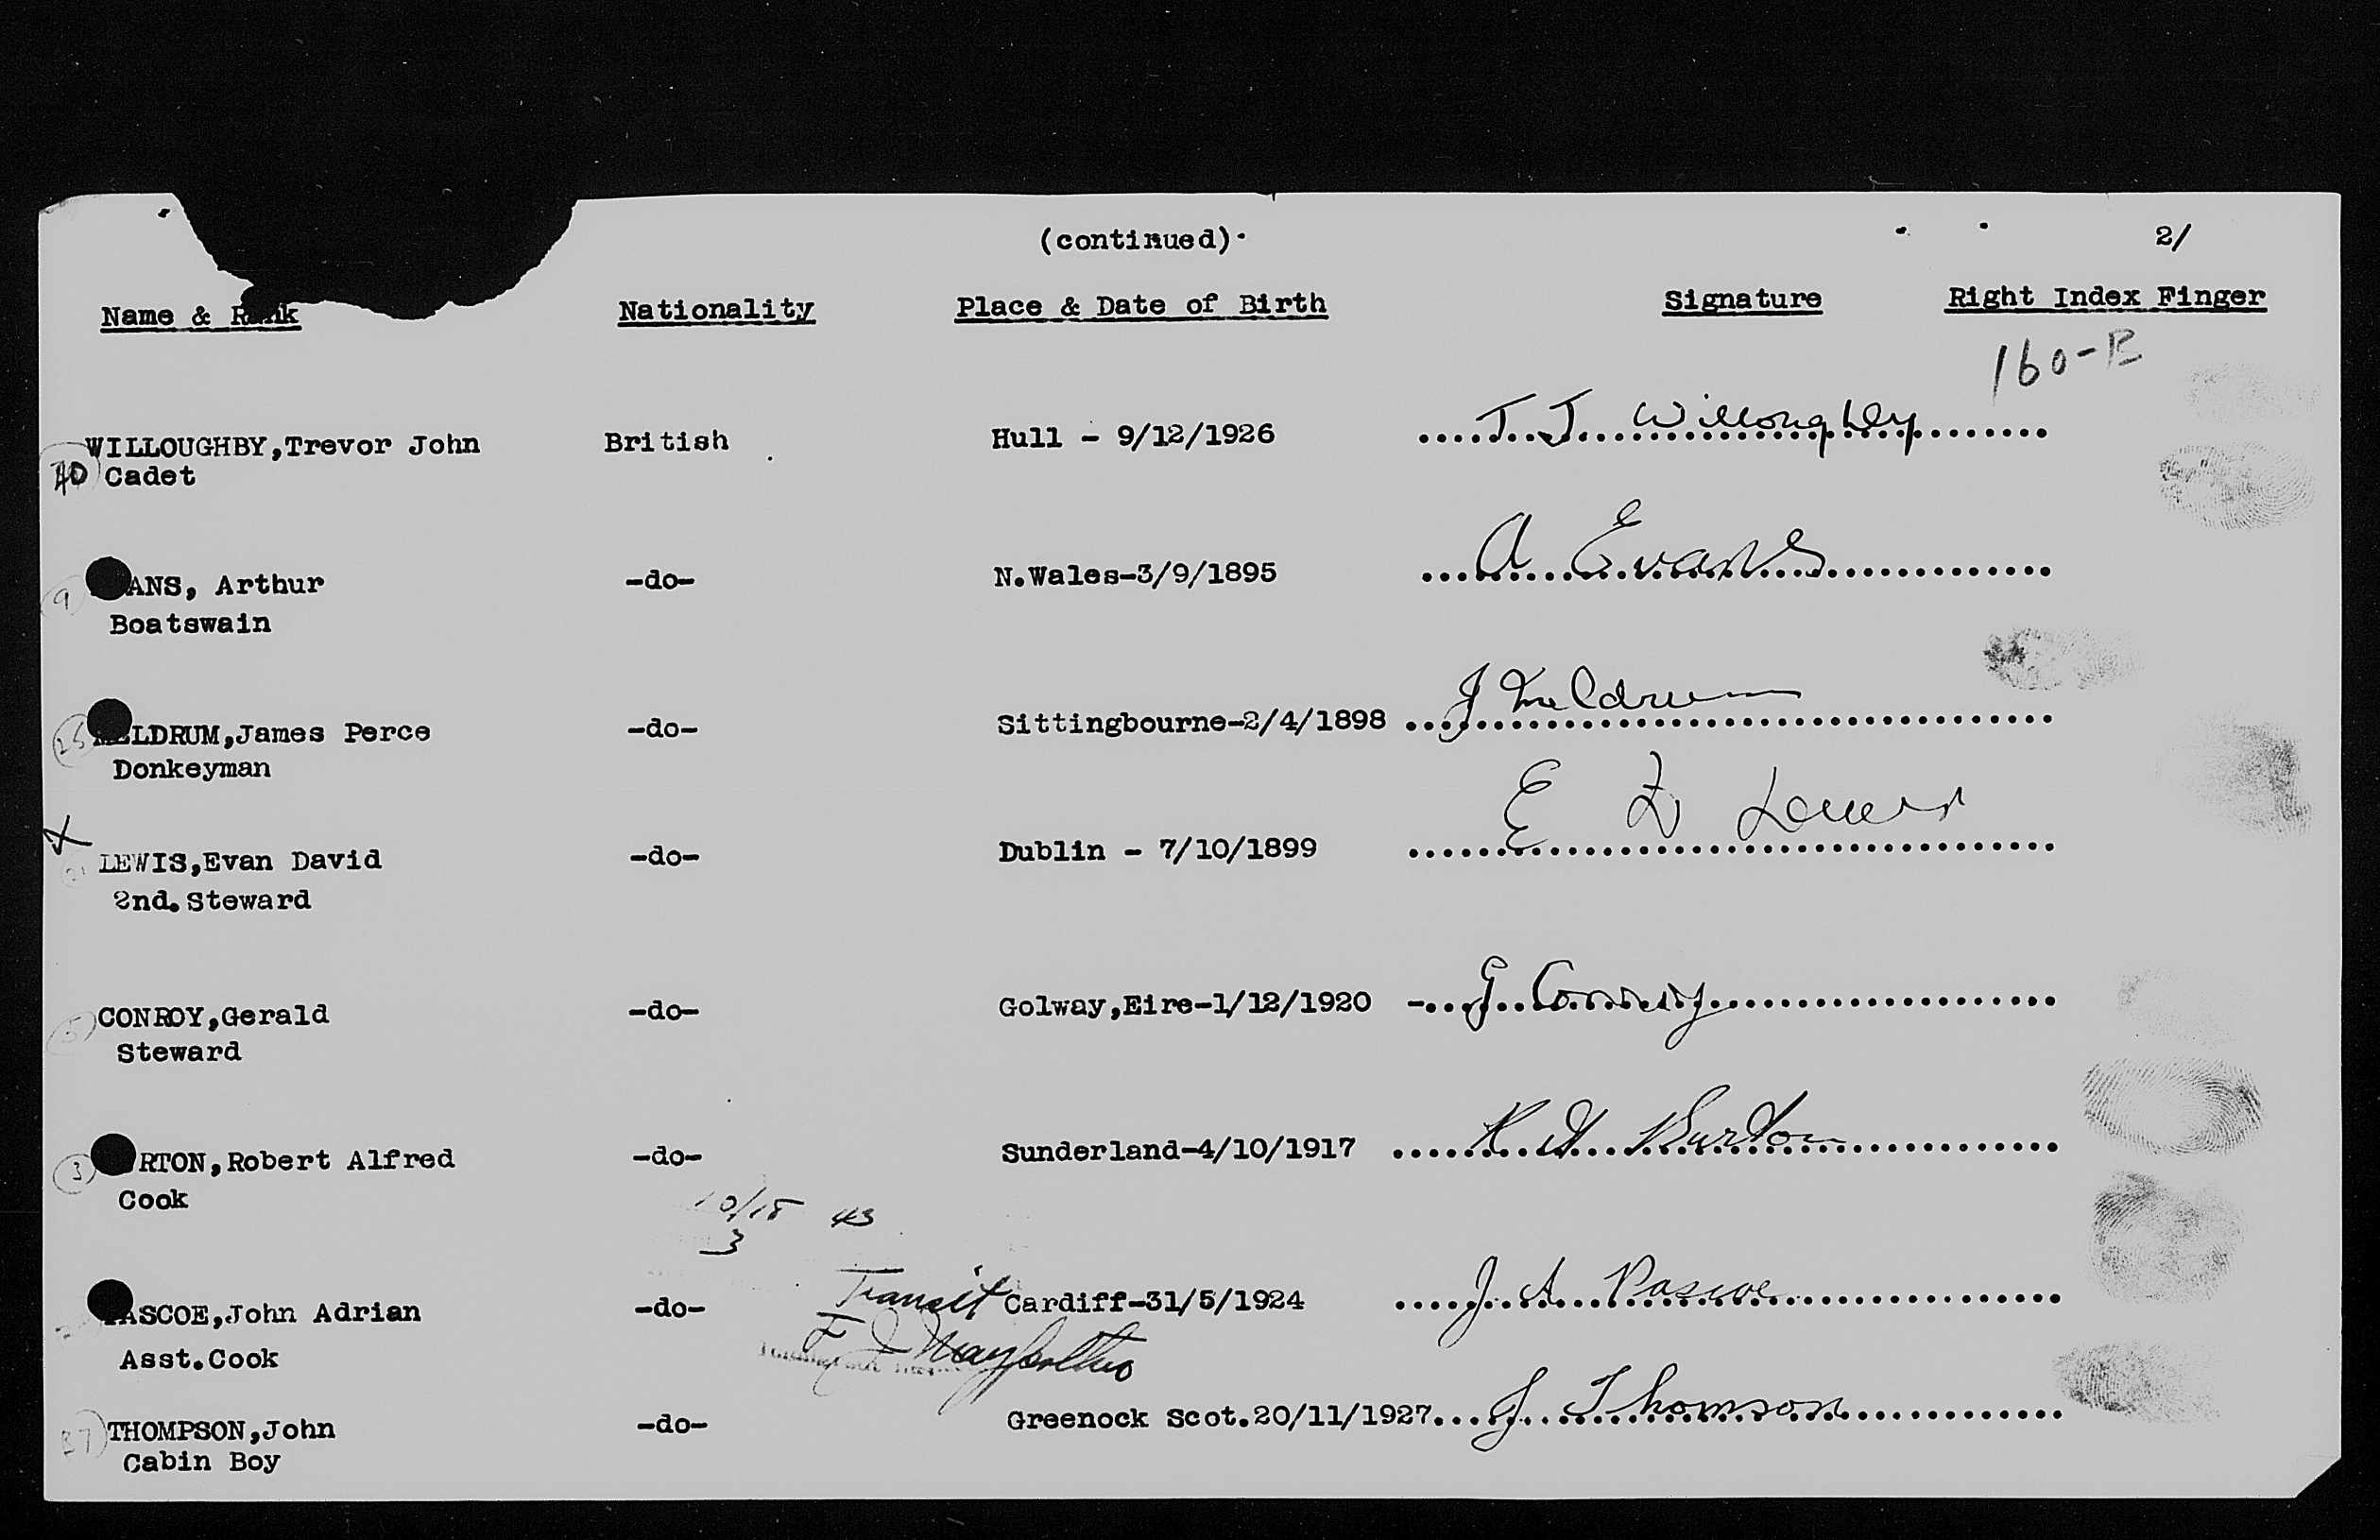 (continued).
2/
Name & Rank
Nationality
Place & Date of Birth
Signature
Right Index Finger
160-E
WILLOUGHBY,Trevor John
British
Hull - 9/12/1926
T. J. Willoughby
40
Cadet
9
ANS, Arthur
-do-
N.Wales-3/9/1895
A Evans
Boatswain
25
LDRUM,James Perce
-do-
Sittingbourne-2/4/1898
J Meldrum
Donkeyman
X
LEWIS,Evan David
-do-
Dublin - 7/10/1899
E D Lewis
2nd.Steward
5
CONROY,Gerald
-do-
Golway,Eire-1/12/1920
G Conroy
Steward
3
RTON,Robert Alfred
-do-
Sunderland-4/10/1917
R A Burton
Cook
10/18 43
3
ASCOE,John Adrian
-do-
Transit
Cardiff-31/5/1924
J. A. Pascoe
Asst.Cook
37
THOMPSON,John
-do-
Greenock Scot.20/11/1927
J. Thomson
Cabin Boy